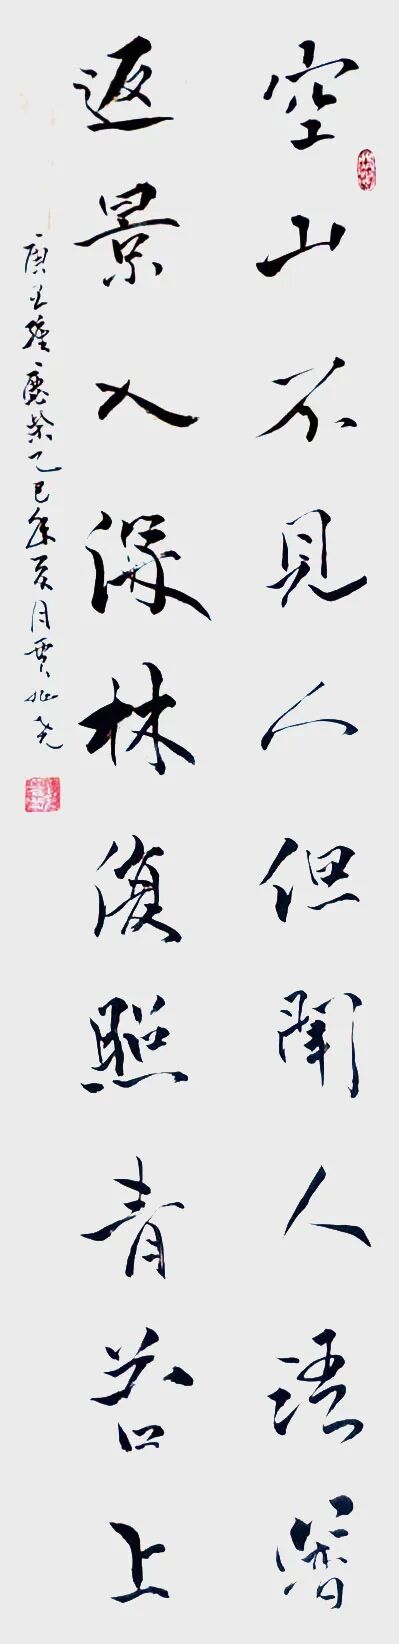 空山不見人但聞人語響
返景入深林復照青苔上
唐王維鹿柴乙巳年亥月賈兆堯